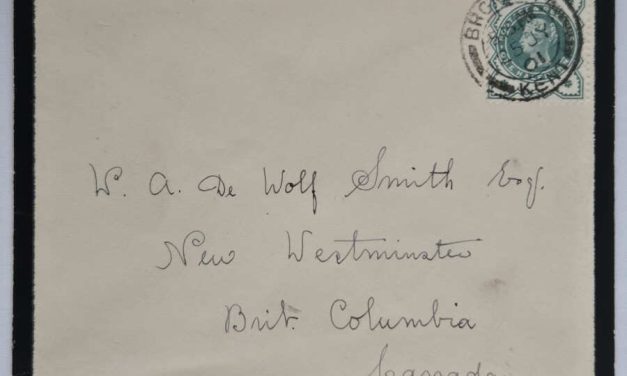 BRO
JU
01
KENT
W. A. De Wolf Smith Esq.
New Westminster
Brit. Columbia
Cannada